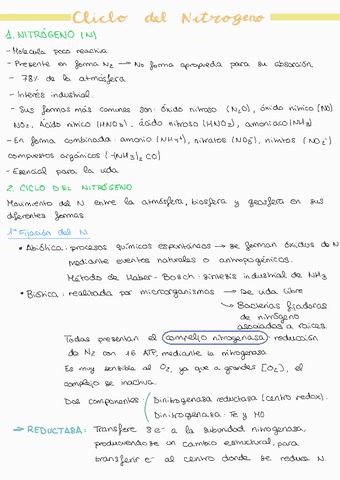 Cliclo del Nitrogeno
1. NITRÓGENO (N)
- Molecula poco reactiva
- Presente en forma N₂ → No forma apropueda para su absorción
- 78% de la atmósfera
- Interés industrial.
- Sus formas más comunes son: óxido nitroso (N₂O), óxido nítrico (NO)
NO₂, Ácido nítrico (HNO₃), ácido nitroso (HNO₂), amoniaco (NH₃)
- En forma combinada: amonio (NH₄⁺), nitratos (NO₃⁻), nitritos (NO₂⁻)
compuestos orgánicos (-(NH₃)₂ CO)
- Esencial para la vida
2. CICLO DEL NITRÓGENO
Movimiento del N entre la atmósfera, biosfera y geosfera en sus
diferentes formas.
1º Fijación del N
• Abiótica: procesos químicos espontáneos → se forman óxidos de N
mediante eventos naturales o antropogénicos.
Método de Haber-Bosch: síntesis industrial de NH₃
• Biótica: realizada por microorganismos → De vida libre
↳ Bacterias fijadoras
de nitrógeno
asociadas a raíces.
Todas presentan el complejo nitrogenasa: reducción
de N₂ con 16 ATP, mediante la nitrogenasa
Es muy sensible al O₂, ya que a grandes [O₂], el
complejo se inactiva.
Dos componentes: Dinitrogenasa reductasa (centro redox).
Dinitrogenasa: Fe y MO
→ REDUCTASA: Transfere 8 e⁻ a la subunidad nitrogenasa,
produciendo se un cambio estructural, para
transferir e⁻ al centro donde se reduce N.